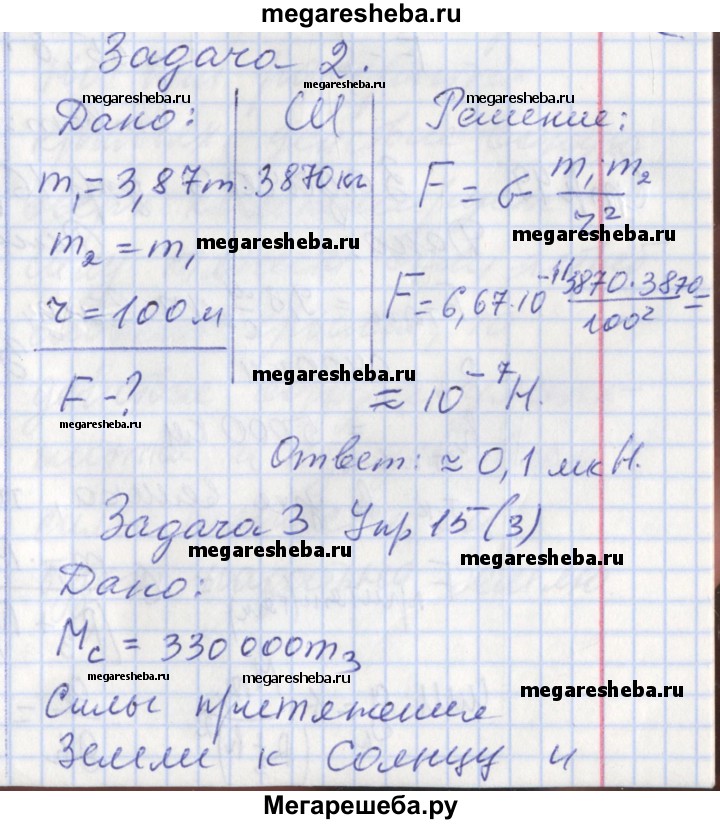 megaresheba.ru
Задача 2.
megaresheba.ru
megaresheba.ru megaresheba.ru
Дано: СИ Решение:
m₁ = 3,87т. 3870 кг F = G m₁ m₂ / r²
m₂ = m₁ megaresheba.ru megaresheba.ru
r = 100 м F = 6,67·10⁻¹¹ 3870·3870 / 100² =
megaresheba.ru
F - ? ≈ 10⁻⁷ Н.
megaresheba.ru
Ответ: ≈ 0,1 мкН.
Задача 3 Упр 15 (3)
megaresheba.ru megaresheba.ru
Дано:
Mс = 330 000 m₃
megaresheba.ru megaresheba.ru megaresheba.ru
Силы притяжения
Земли к Солнцу и
Мегарешеба.ру